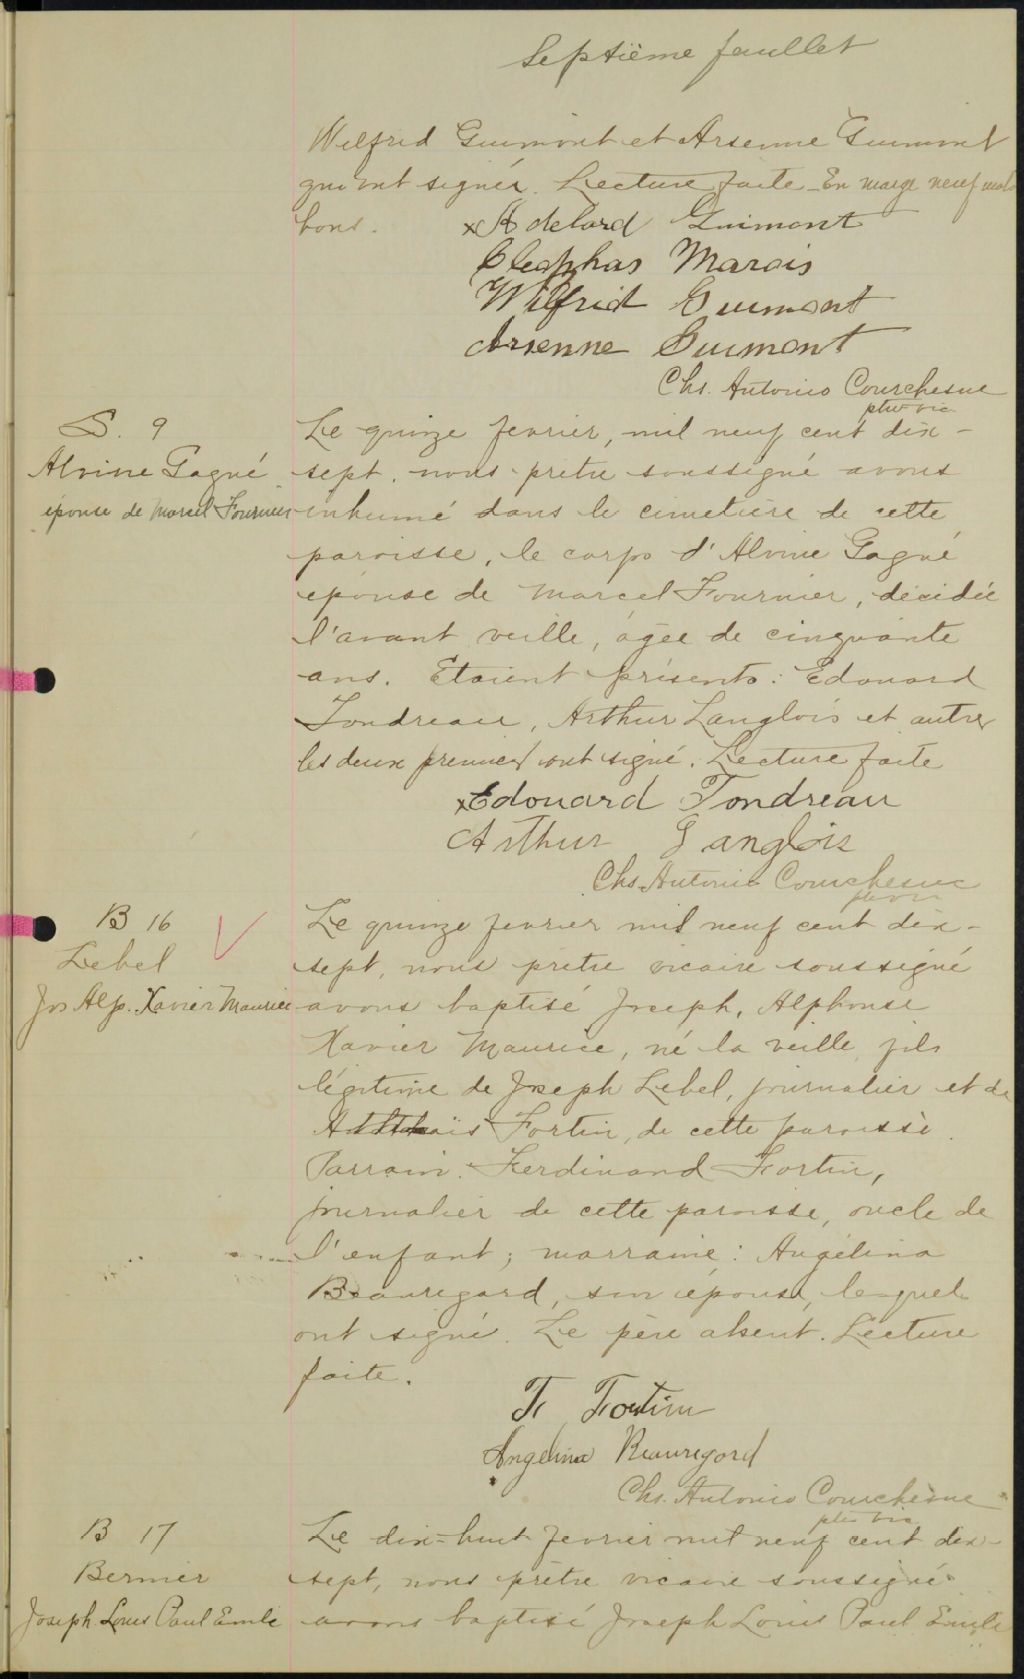 Septième feuillet
Wilfrid Guimont et Arsenne Guimont
qui ont signés. Lecture faite - En marge neuf mots
bons.
x Adelard Guimont
Cleophas Marois
Wilfrid Guimont
Arsenne Guimont
Chs. Antonio Courchesne
ptre vic
S. 9
Alvine Gagné
épouse de Marcel Fournier
Le quinze fevrier, mil neuf cent dix-
sept, nous prêtre soussigné avons
inhumé dans le cimetière de cette
paroisse, le corps d'Alvine Gagné
épouse de Marcel Fournier, décédée
l'avant veille, âgée de cinquante
ans. Etaient présents: Edouard
Tondreau, Arthur Langlois et autres
les deux premiers ont signé. Lecture faite
x Edouard Tondreau
Arthur Langlois
Chs. Antonio Courchesne
ptre vic
B 16
Lebel
Jos Alp. Xavier Maurice
Le quinze fevrier mil neuf cent dix-
sept, nous prêtre vicaire soussigné
avons baptisé Joseph, Alphonse
Xavier Maurice, né la veille, fils
légitime de Joseph Lebel, journalier et de
Fortin, de cette paroisse.
Parrain: Ferdinand Fortin,
journalier de cette paroisse, oncle de
l'enfant; marraine: Angélina
Beauregard, son épouse, lesquels
ont signé. Le père absent. Lecture
faite.
F. Fortin
Angelina Beauregard
Chs. Antonio Courchesne
ptre vic
B 17
Bernier
Joseph Louis Paul Emile
Le dix-huit fevrier mil neuf cent dix-
sept, nous prêtre vicaire soussigné
avons baptisé Joseph Louis Paul Emile